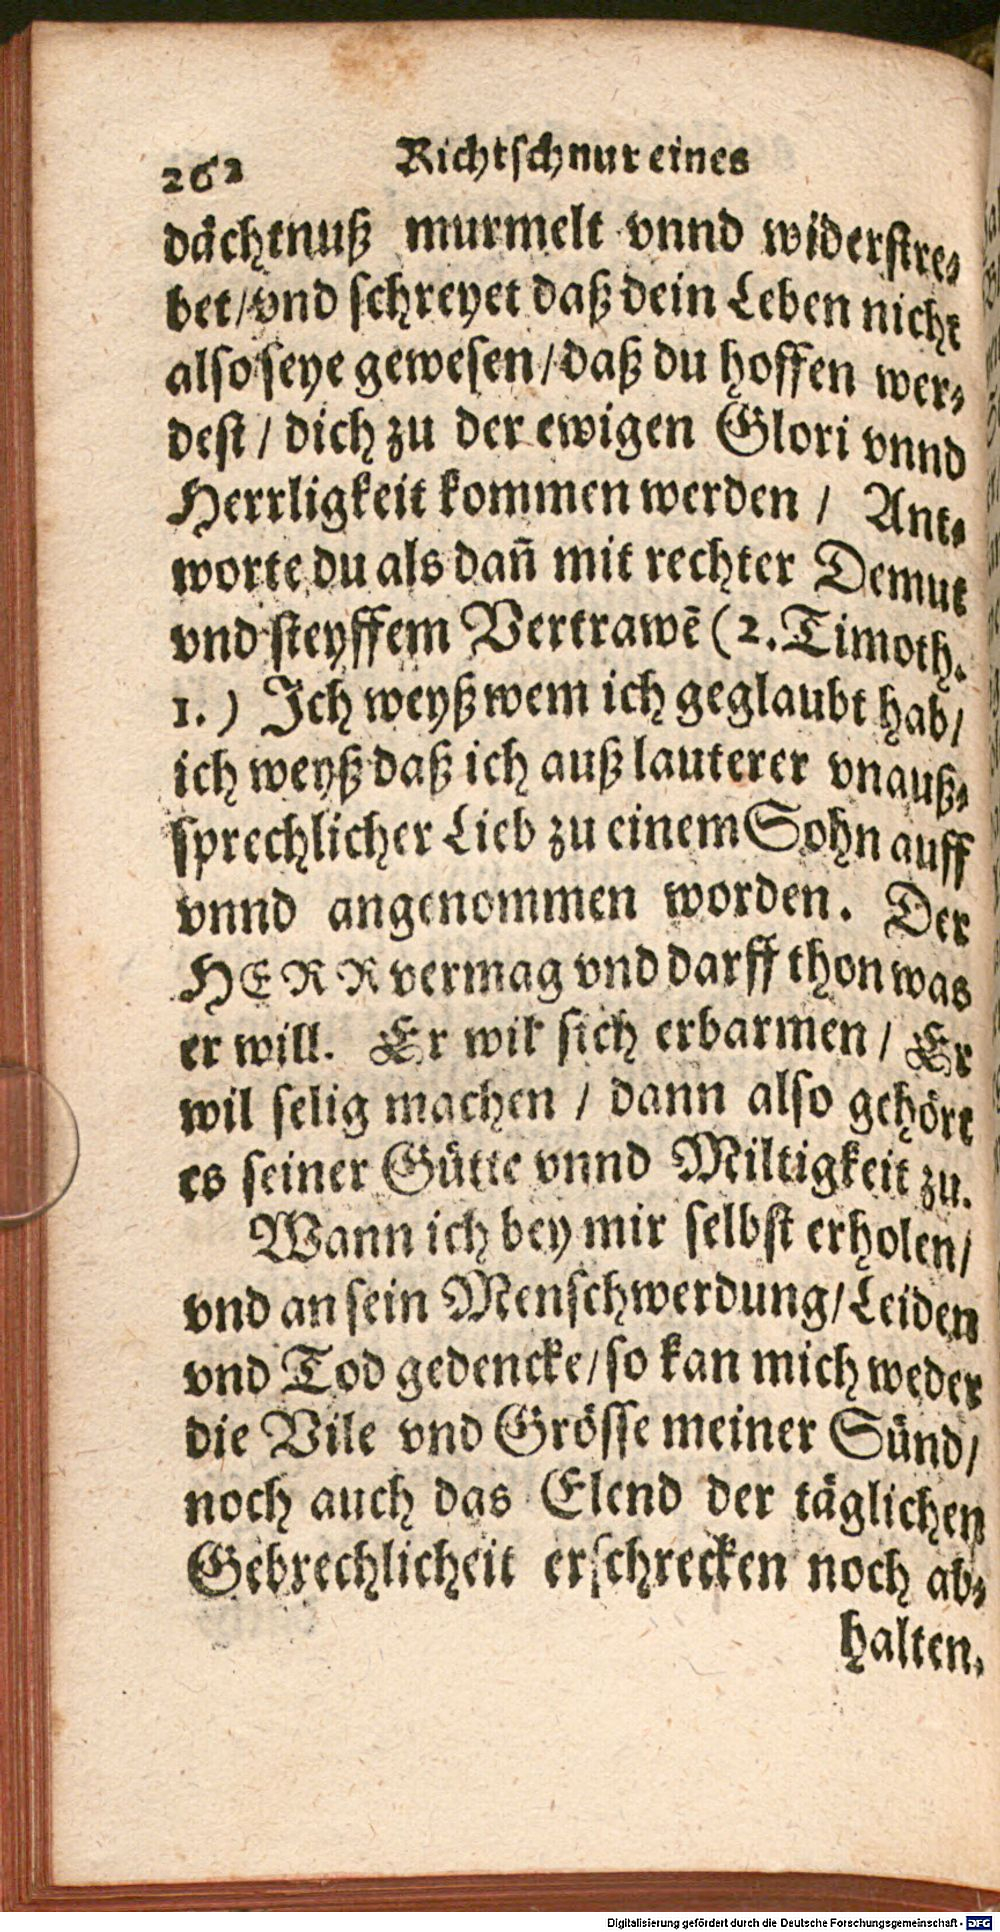 262 Richtschnur eines
dächtnuß murmelt vnnd widerstre-
bet/vnd schreyet daß dein Leben nicht
also seye gewesen/daß du hoffen wer-
dest/dich zu der ewigen Glori vnnd
Herrligkeit kommen werden / Ant-
worte du als dañ mit rechter Demut
vnd steyffem Vertrawẽ (2. Timoth.
1.) Ich weyß wem ich geglaubt hab/
ich weyß daß ich auß lauterer vnauß-
sprechlicher Lieb zu einem Sohn auff
vnnd angenommen worden. Der
HERR vermag vnd darff thon was
er will. Er wil sich erbarmen / Er
wil selig machen / dann also gehört
es seiner Gütte vnnd Miltigkeit zu.
Wann ich bey mir selbst erholen/
vnd an sein Menschwerdung/Leiden
vnd Tod gedencke/so kan mich weder
die Vile vnd Grösse meiner Sünd/
noch auch das Elend der täglichen
Gebrechlicheit erschrecken noch ab-
halten.
Digitalisierung gefördert durch die Deutsche Forschungsgemeinschaft - DFG